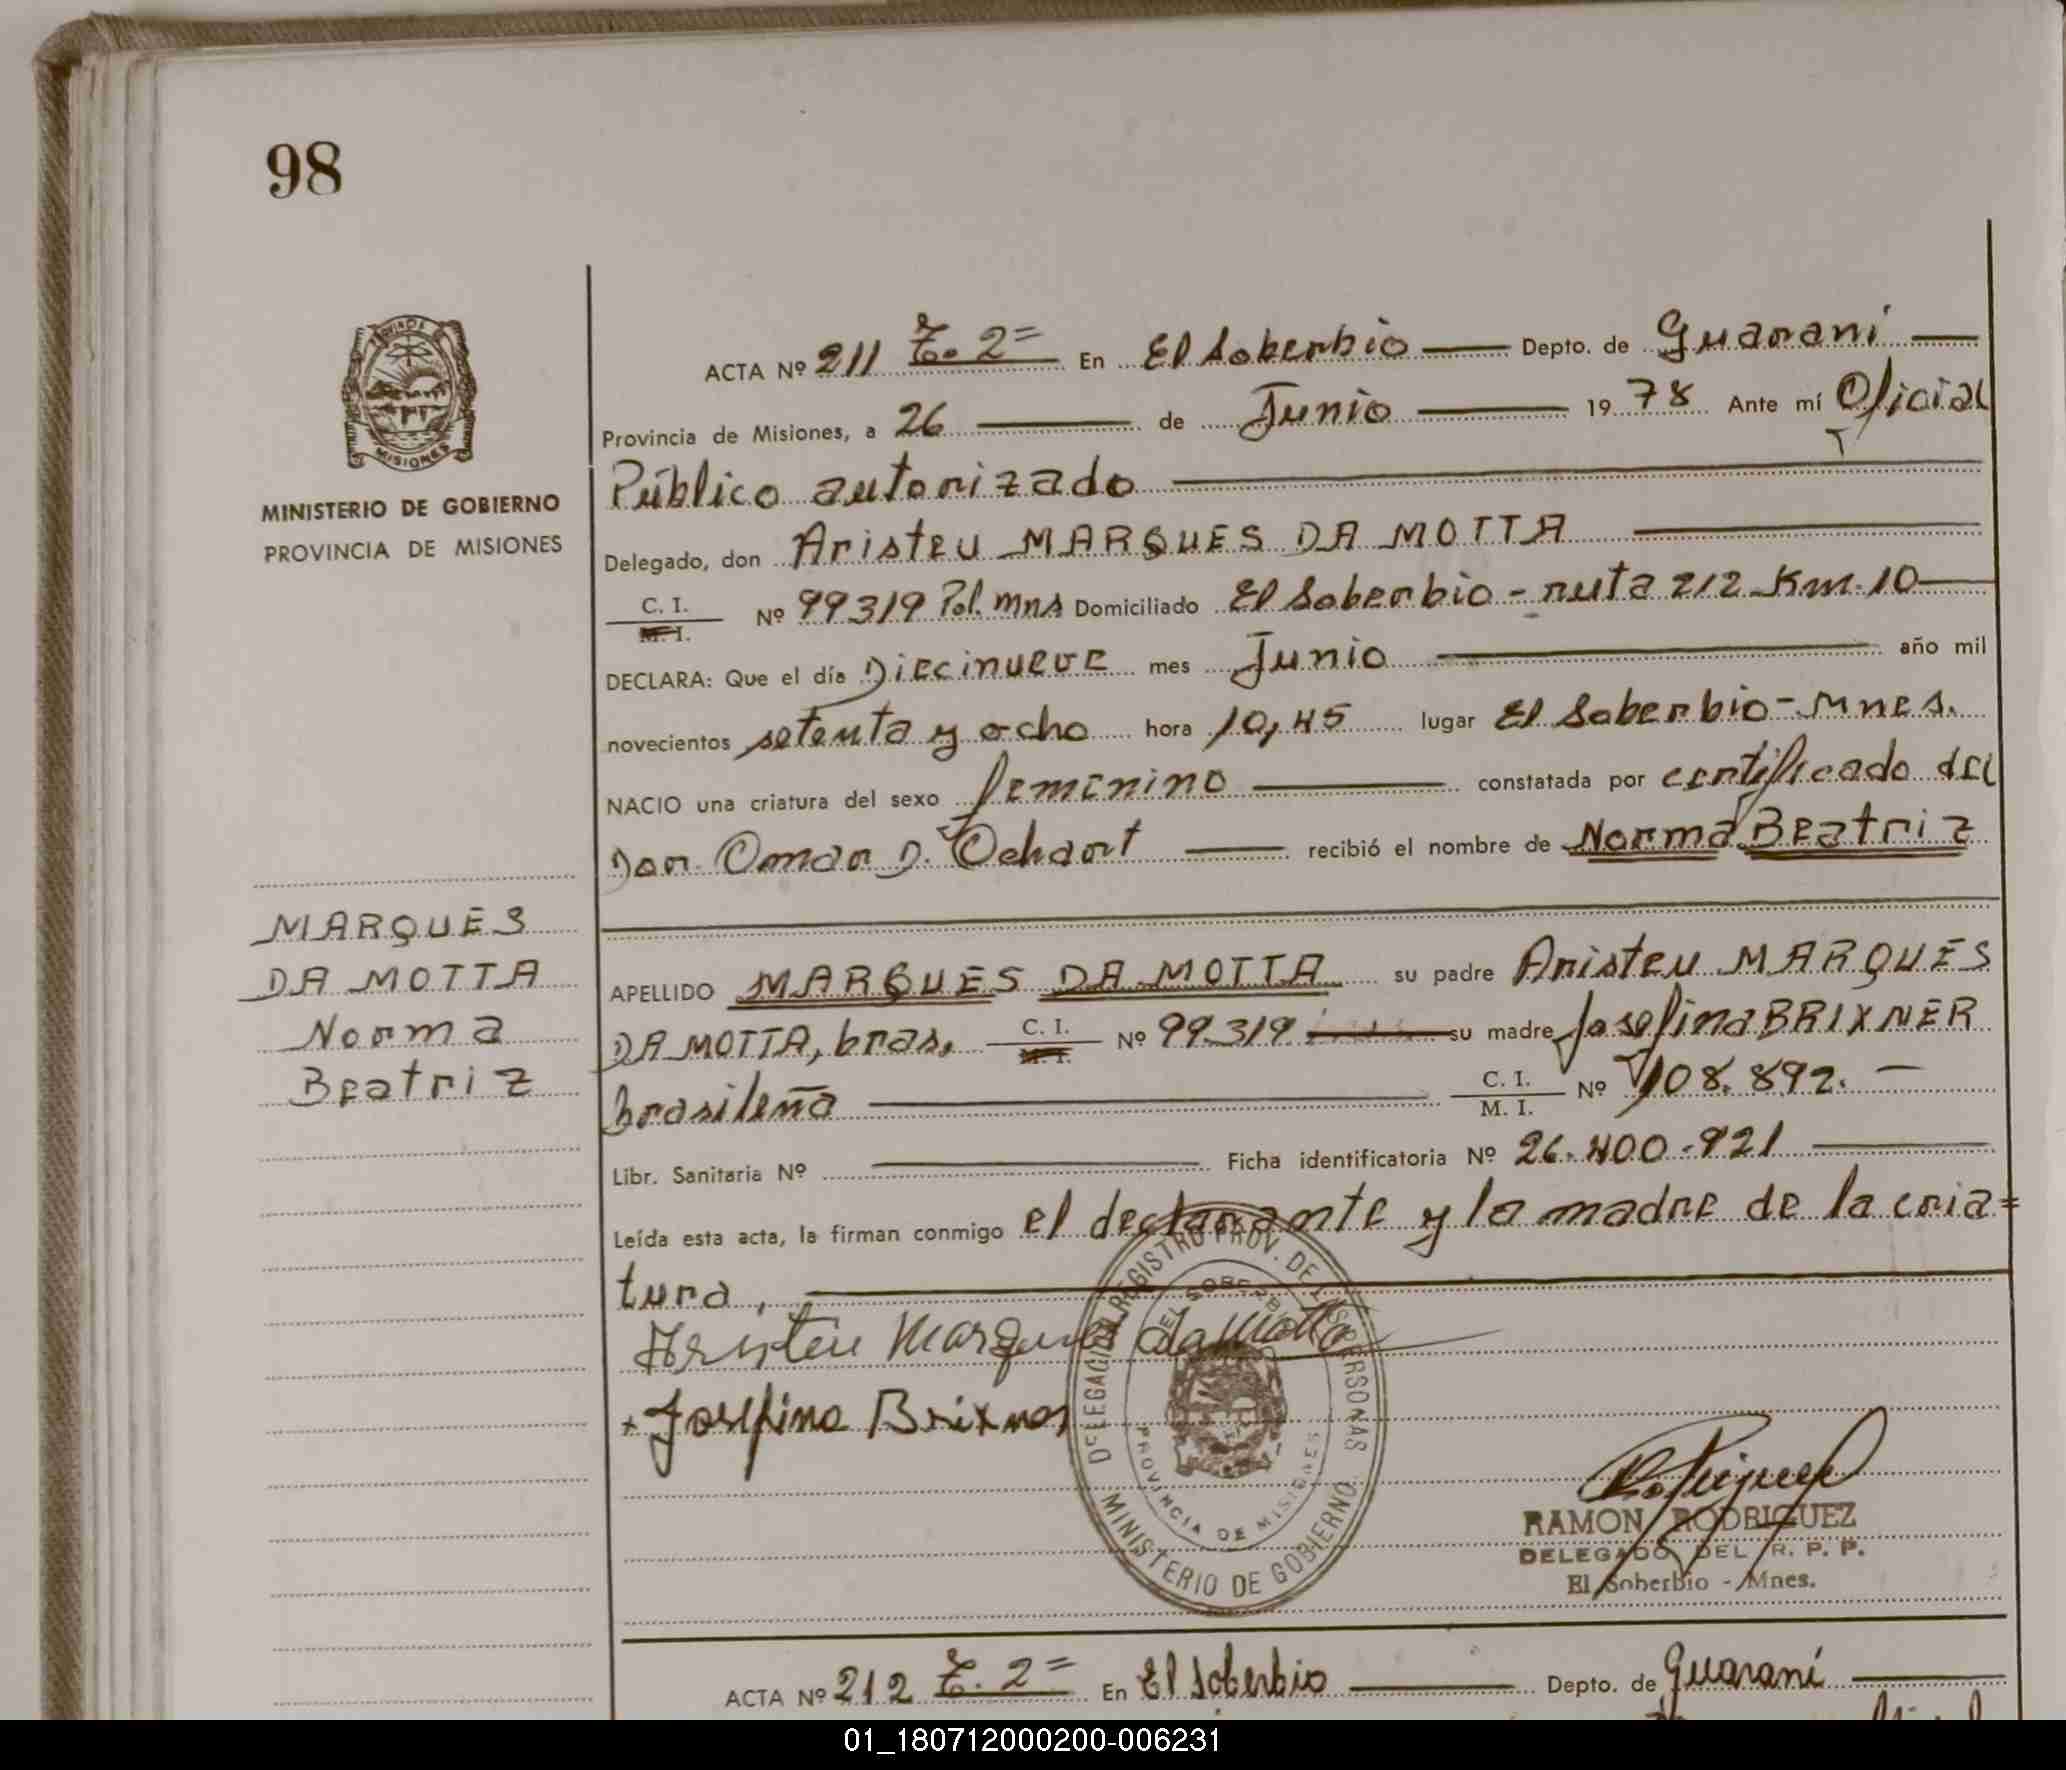 98
PROVINCIA
MISIONES
MINISTERIO DE GOBIERNO
PROVINCIA DE MISIONES
MARQUES
DA MOTTA
Norma
Beatriz
ACTA Nº 211 T. 2= En El Soberbio Depto. de Guaraní
Provincia de Misiones, a 26 de Junio 19 78 Ante mí Oficial
Público autorizado
Delegado, don Aristeu MARQUES DA MOTTA
C. I. / M. I. Nº 99319 Pol. Mns Domiciliado El Soberbio - ruta 212 Km. 10
DECLARA: Que el día Diecinueve mes Junio año mil
novecientos setenta y ocho hora 10,45 lugar El Soberbio - Mnes.
NACIO una criatura del sexo femenino constatada por certificado del
Omar D. recibió el nombre de Norma Beatriz
APELLIDO MARQUES DA MOTTA su padre Aristeu MARQUES
DA MOTTA, bras. C. I. / M. I. Nº 99.319 su madre Josefina BRIXNER
brasileña C. I. / M. I. Nº 108.892. —
Libr. Sanitaria Nº Ficha identificatoria Nº 26.400.921
Leída esta acta, la firman conmigo el declarante y la madre de la cria=
tura,
Aristeu Marques da Motta
+ Josefina Brixner
DELEGACION REGISTRO PROV. DE LAS PERSONAS
EL SOBERBIO
PROVINCIA DE MISIONES
MINISTERIO DE GOBIERNO
RAMON RODRIGUEZ
DELEGADO DEL R. P. P.
El Soberbio - Mnes.
ACTA Nº 212 T. 2= En El Soberbio Depto. de Guaraní
01_180712000200-006231